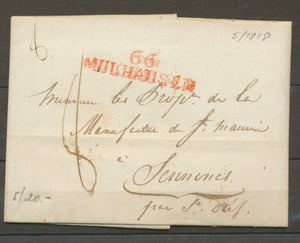 5/1818
66
MULHAUSEN
Monsieur les Prop.rs de la
Manufacture de St. Maurice
à
Senones
par St. Dié
5/20.-